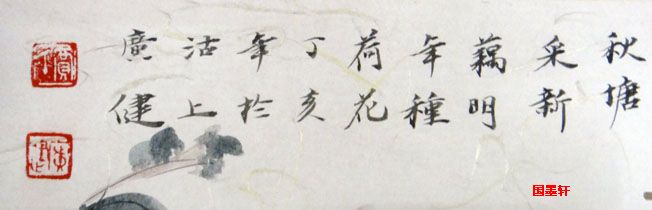 秋塘
采新
藕明
年種
荷花
丁亥
年於
沽上
廣健
国墨轩